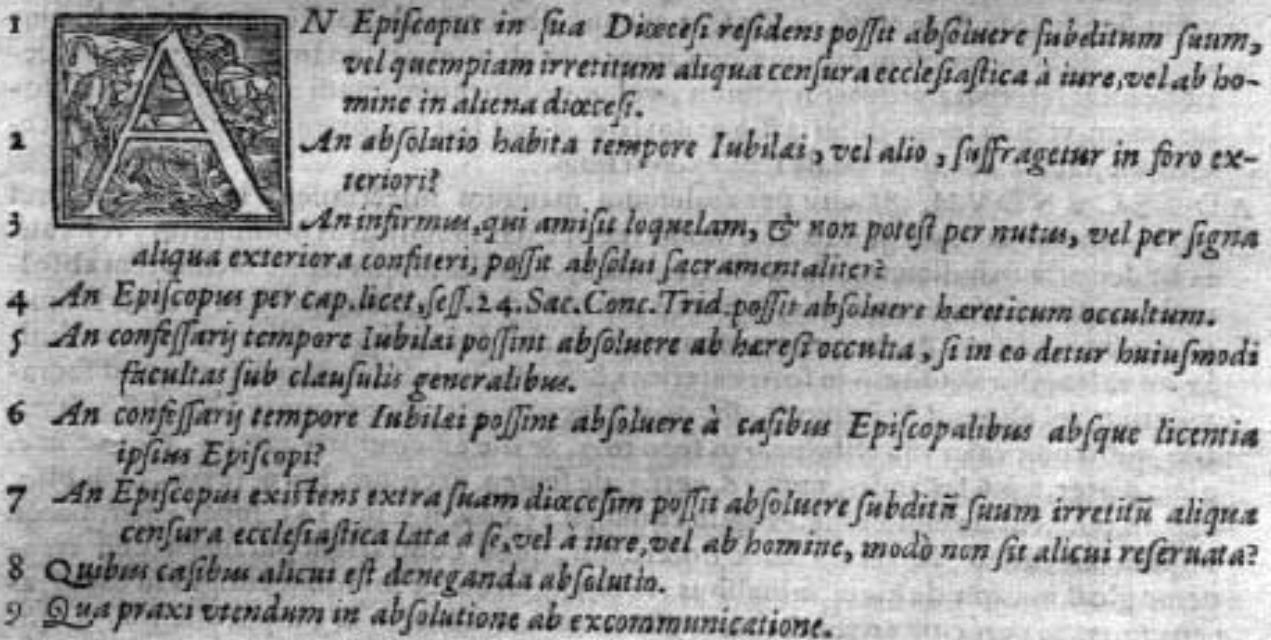 1 AN Epiſcopus in ſua Diœceſi reſidens poſſit abſoluere ſubditum ſuum,
vel quempiam irretitum aliqua cenſura eccleſiaſtica à iure, vel ab ho-
mine in aliena diœceſi.
2 An abſolutio habita tempore Iubilæi, vel alio, ſuffragetur in foro ex-
teriori?
3 An infirmus, qui amiſit loquelam, & non poteſt per nutus, vel per ſigna
aliqua exteriora confiteri, poſſit abſolui ſacramentaliter?
4 An Epiſcopus per cap. licet, ſeſſ. 24. Sac. Conc. Trid. poſſit abſoluere hæreticum occultum.
5 An confeſſarij tempore Iubilæi poſſint abſoluere ab hæreſi occulta, ſi in eo detur huiuſmodi
facultas ſub clauſulis generalibus.
6 An confeſſarij tempore Iubilæi poſſint abſoluere à caſibus Epiſcopalibus abſque licentia
ipſius Epiſcopi?
7 An Epiſcopus exiſtens extra ſuam diœceſim poſſit abſoluere ſubditũ ſuum irretitũ aliqua
cenſura eccleſiaſtica lata à ſe, vel à iure, vel ab homine, modò non ſit alicui reſeruata?
8 Quibus caſibus alicui eſt deneganda abſolutio.
9 Qua praxi vtendum in abſolutione ab excommunicatione.